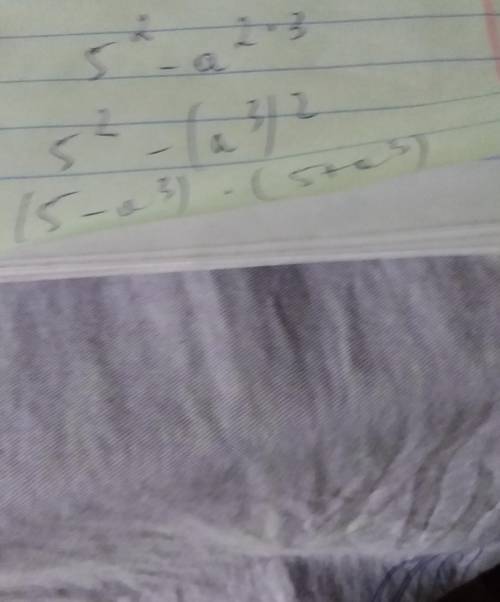 5² - a²·³
5² - (a³)²
(5 - a³) · (5 + a³)